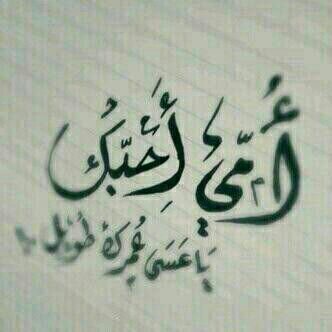 أُمِّي أُحِبُّكِ
يَا عَسَى عُمْرِكْ طُوِيل